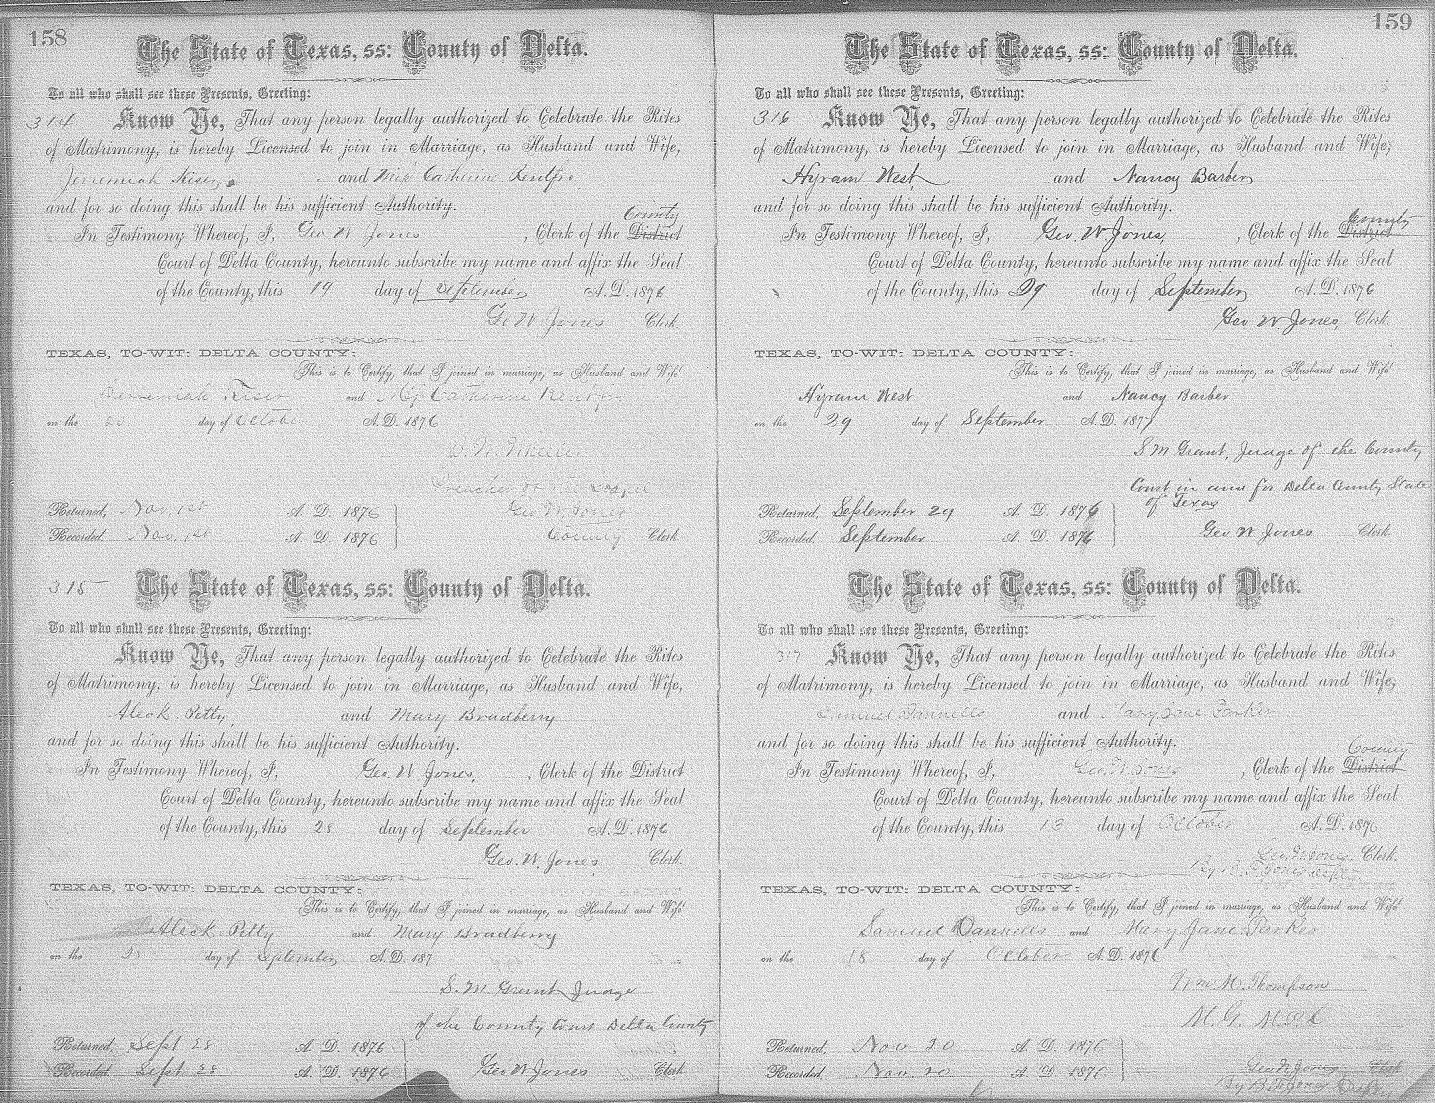 158
The State of Texas, ss: County of Delta.
To all who shall see these Presents, Greeting:
314 Know Ye, That any person legally authorized to Celebrate the Rites
of Matrimony, is hereby Licensed to join in Marriage, as Husband and Wife,
Jeremiah Kiser and Miss Catherine
and for so doing this shall be his sufficient Authority.
County
In Testimony Whereof, I, Geo W Jones, Clerk of the District
Court of Delta County, hereunto subscribe my name and affix the Seal
of the County, this 19 day of September A.D. 1876
Geo W Jones Clerk.
TEXAS, TO-WIT: DELTA COUNTY:
This is to Certify, that I joined in marriage, as Husband and Wife
Jeremiah Kiser and Catherine
on the 20 day of October A.D. 1876
Preacher of the Gospel
Returned, Nov. 1st A. D. 1876 Geo. W. Jones
Recorded, Nov. 1st A. D. 1876 County Clerk
315 The State of Texas, ss: County of Delta.
To all who shall see these Presents, Greeting:
Know Ye, That any person legally authorized to Celebrate the Rites
of Matrimony, is hereby Licensed to join in Marriage, as Husband and Wife,
Aleck Petty, and Mary Bradberry
and for so doing this shall be his sufficient Authority.
In Testimony Whereof, I, Geo. W Jones, Clerk of the District
Court of Delta County, hereunto subscribe my name and affix the Seal
of the County, this 28 day of September A.D. 1876
Geo. W. Jones, Clerk.
TEXAS, TO-WIT: DELTA COUNTY:
This is to Certify, that I joined in marriage, as Husband and Wife
Aleck Petty and Mary Bradberry
on the 28 day of September A.D. 187
S. M Grant Judge
of the County Court Delta County
Returned, Sept 28 A. D. 1876
Recorded, Sept. 28 A. D. 1876 Geo W Jones Clerk
159
The State of Texas, ss: County of Delta.
To all who shall see these Presents, Greeting:
316 Know Ye, That any person legally authorized to Celebrate the Rites
of Matrimony, is hereby Licensed to join in Marriage, as Husband and Wife,
Hyram West and Nancy Barber
and for so doing this shall be his sufficient Authority.
County
In Testimony Whereof, I, Geo. W Jones, Clerk of the District
Court of Delta County, hereunto subscribe my name and affix the Seal
of the County, this 29 day of September A.D. 1876
Geo W Jones Clerk.
TEXAS, TO-WIT: DELTA COUNTY:
This is to Certify, that I joined in marriage, as Husband and Wife
Hyram West and Nancy Barber
on the 29 day of September A.D. 187
S M Grant, Judge of the County
Court in and for Delta County State
of Texas
Returned, September 29 A. D. 1876
Recorded, September A. D. 1876 Geo W Jones Clerk
The State of Texas, ss: County of Delta.
To all who shall see these Presents, Greeting:
317 Know Ye, That any person legally authorized to Celebrate the Rites
of Matrimony, is hereby Licensed to join in Marriage, as Husband and Wife,
Samuel Dannells and Mary Jane Parker
and for so doing this shall be his sufficient Authority.
County
In Testimony Whereof, I, Geo. W Jones, Clerk of the District
Court of Delta County, hereunto subscribe my name and affix the Seal
of the County, this 13 day of October A.D. 1876
Geo. W Jones Clerk.
TEXAS, TO-WIT: DELTA COUNTY:
This is to Certify, that I joined in marriage, as Husband and Wife
Samuel Dannells and Mary Jane Parker
on the 18 day of October A.D. 1876
Wm. M. Thompson
M. G.
Returned, Nov 20 A. D. 1876
Recorded, Nov. 20 A. D. 1876 Geo W Jones Clerk